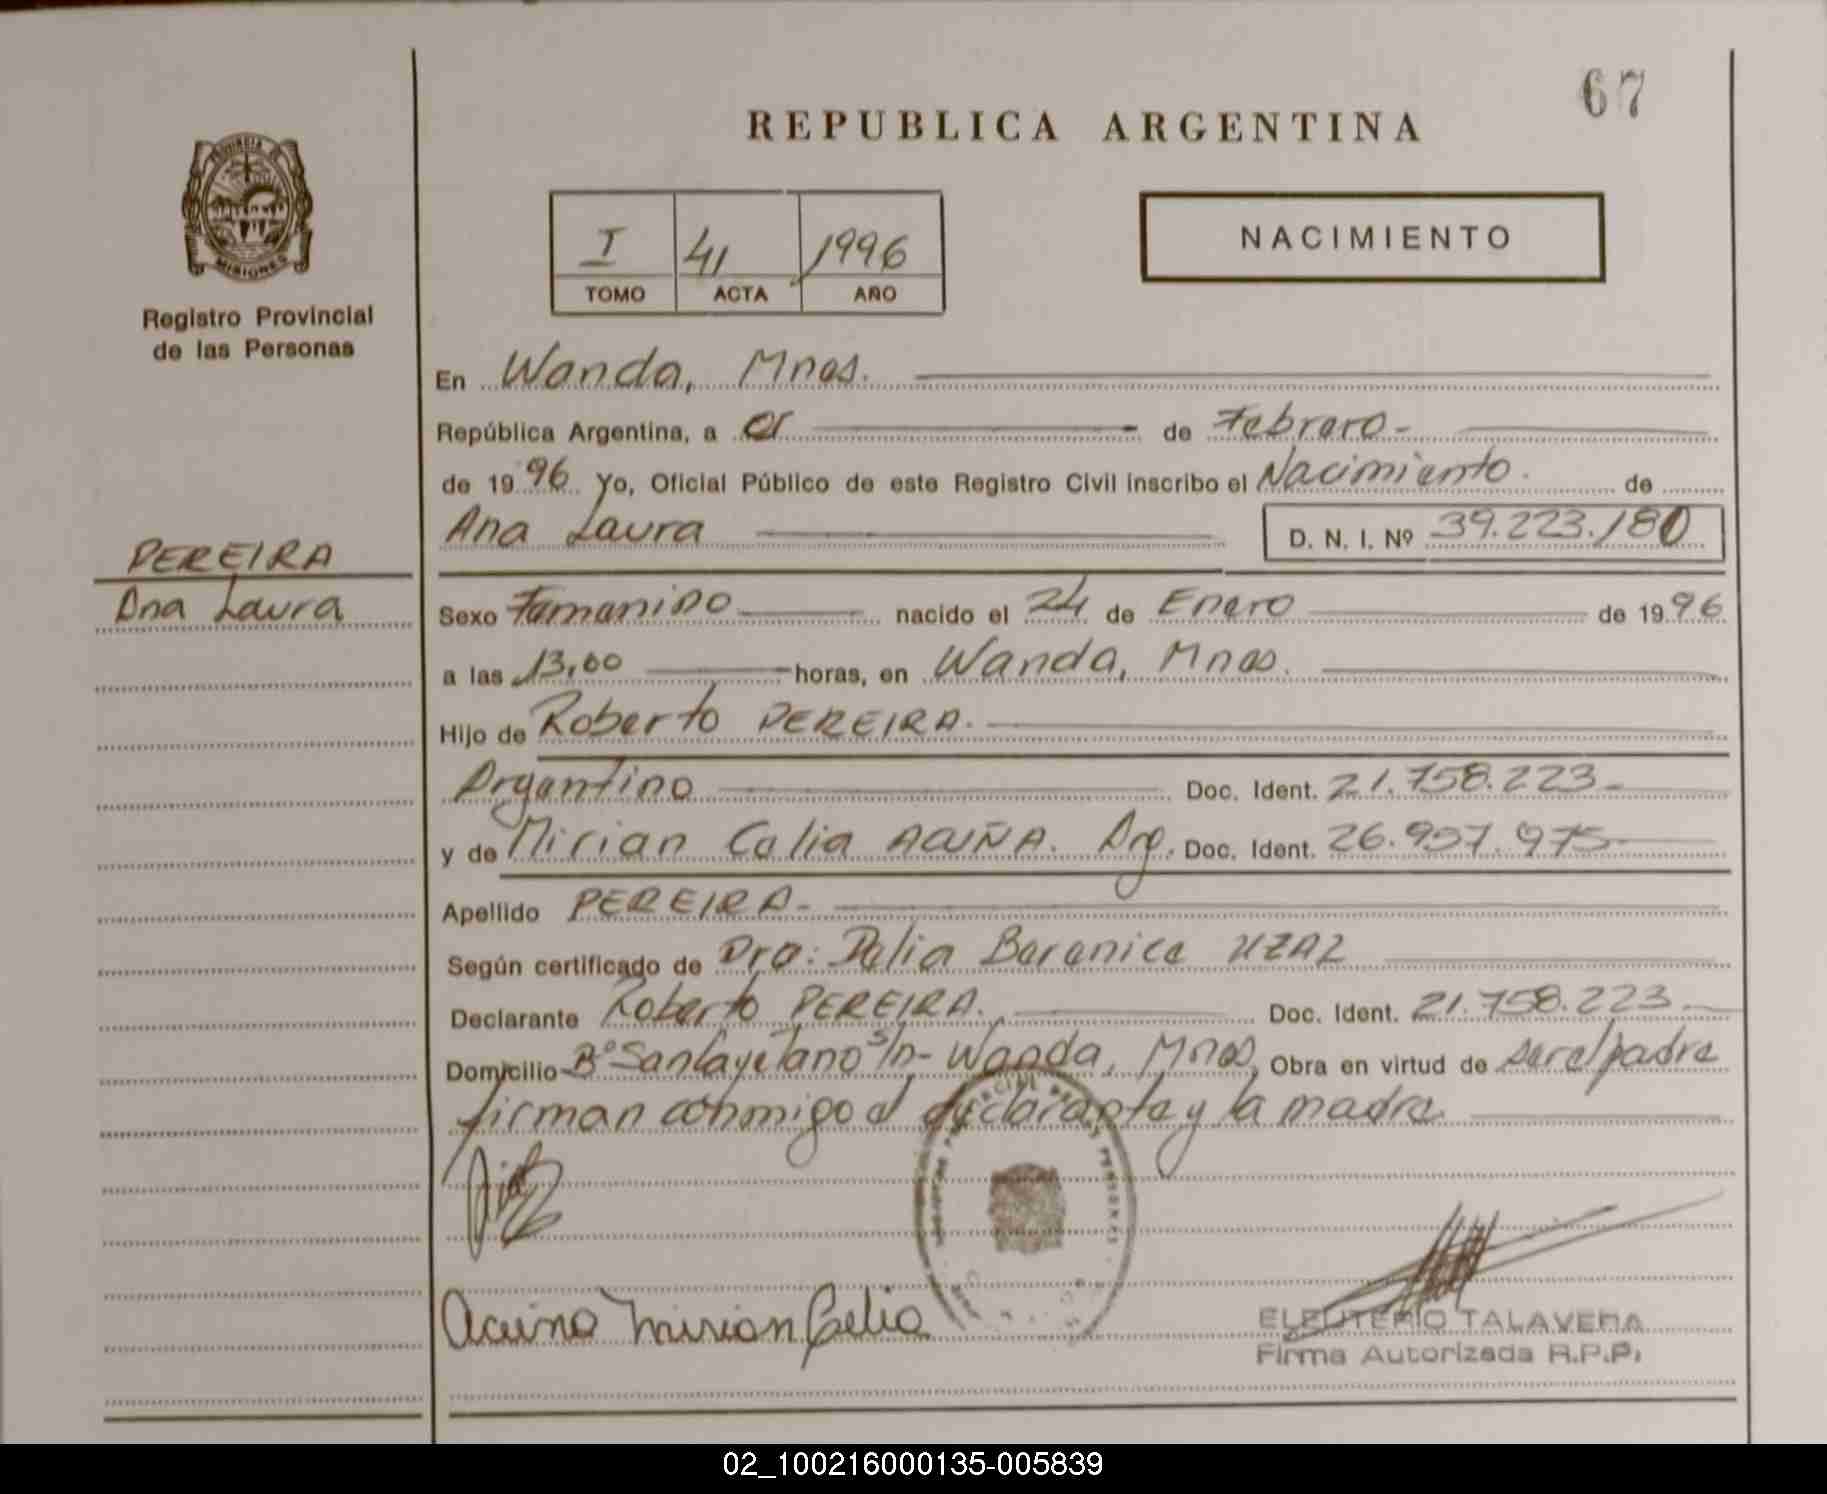 67
REPUBLICA ARGENTINA
PROVINCIA DE
MISIONES
Registro Provincial
de las Personas
I 41 1996
TOMO ACTA AÑO
NACIMIENTO
En Wanda, Mnes.
República Argentina, a 01 de Febrero-
de 1996 Yo, Oficial Público de este Registro Civil inscribo el Nacimiento. de
Ana Laura D. N. I. Nº 39.223.180
PEREIRA
Ana Laura
Sexo Femenino nacido el 24 de Enero de 1996
a las 13,00 horas, en Wanda, Mnes.
Hijo de Roberto PEREIRA.
Argentino Doc. Ident. 21.758.223-
y de Mirian Celia ACUÑA. Arg. Doc. Ident. 26.957.975-
Apellido PEREIRA-
Según certificado de Dra: Delia Berenice UZAL
Declarante Roberto PEREIRA. Doc. Ident. 21.758.223-
Domicilio Bº San Cayetano S/n- Wanda, Mnes, Obra en virtud de ser el padre
firman conmigo el declarante y la madre.
Acuña Mirian Celia
ELEUTERIO TALAVERA
Firma Autorizada R.P.P.
02_100216000135-005839